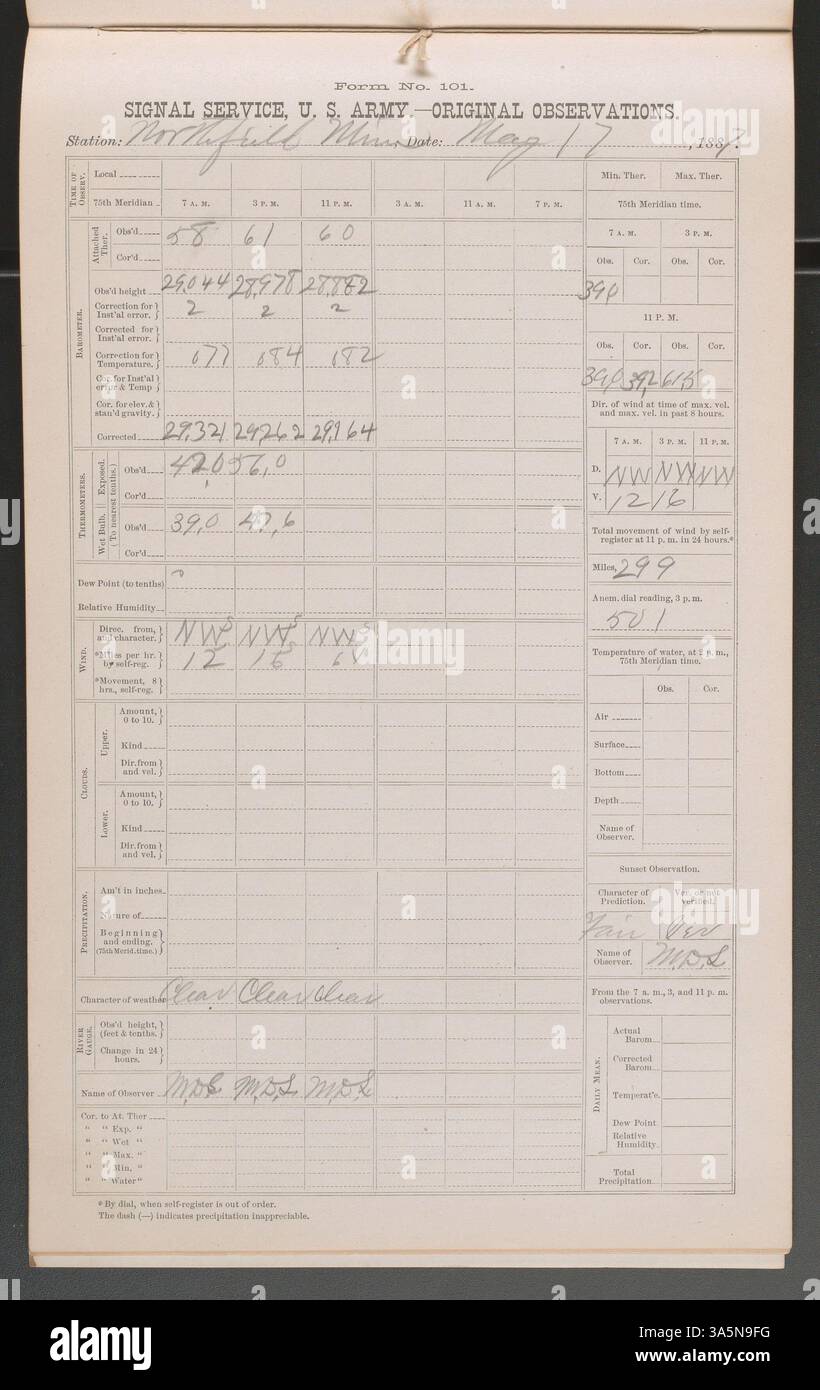 Form No. 101.
SIGNAL SERVICE, U. S. ARMY.—ORIGINAL OBSERVATIONS.
Station: Northfield Minn Date: May 17, 1887.
TIME OF OBSERV.
Local
75th Meridian 7 A. M. 3 P. M. 11 P. M. 3 A. M. 11 A. M. 7 P. M.
BAROMETER.
Attached Ther.
Obs'd 58 61 60
Cor'd
Obs'd height 29,044 28,978 28,882
Correction for Inst'al error. 2 2 2
Corrected for Inst'al error.
Correction for Temperature. 077 084 082
Cor. for Inst'al error & Temp
Cor. for elev. & stan'd gravity.
Corrected 29,321 29,262 29,164
THERMOMETERS.
Exposed.
Wet Bulb.
(To nearest tenths.)
Obs'd 42,0 56,0
Cor'd
Obs'd 39,0 47,6
Cor'd
Dew Point (to tenths)
Relative Humidity
WIND.
Direc. from, and character. NW NW NW
*Miles per hr. by self-reg. 12 16
*Movement, 8 hrs., self-reg.
CLOUDS.
Upper.
Amount, 0 to 10.
Kind
Dir. from and vel.
Lower.
Amount, 0 to 10.
Kind
Dir. from and vel.
PRECIPITATION.
Am't in inches
Nature of
Beginning and ending. (75th Merid. time.)
Character of weather Clear Clear Clear
RIVER GAUGE.
Obs'd height, (feet & tenths.)
Change in 24 hours.
Name of Observer M.D.S. M.D.S. M.D.S.
Cor. to At. Ther
" " Exp. "
" " Wet "
" " Max. "
" " Min. "
" " Water "
* By dial, when self-register is out of order.
The dash (—) indicates precipitation inappreciable.
Min. Ther. Max. Ther.
75th Meridian time.
7 A. M. 3 P. M.
Obs. Cor. Obs. Cor.
39,0
11 P. M.
Obs. Cor. Obs. Cor.
39,0 39,2 61,5
Dir. of wind at time of max. vel. and max. vel. in past 8 hours.
7 A. M. 3 P. M. 11 P. M.
D. NW NW NW
V. 12 16
Total movement of wind by self-register at 11 p. m. in 24 hours.*
Miles, 299
Anem. dial reading, 3 p. m.
501
Temperature of water, at 2 p. m., 75th Meridian time.
Obs. Cor.
Air
Surface
Bottom
Depth
Name of Observer.
Sunset Observation.
Character of Prediction. Ver. or not verified.
Fair Ver
Name of Observer. M.D.S.
From the 7 a. m., 3, and 11 p. m. observations.
DAILY MEAN.
Actual Barom.
Corrected Barom.
Temperat'e.
Dew Point
Relative Humidity.
Total Precipitation
alamy
a
Image ID: 3A5N9FG
www.alamy.com